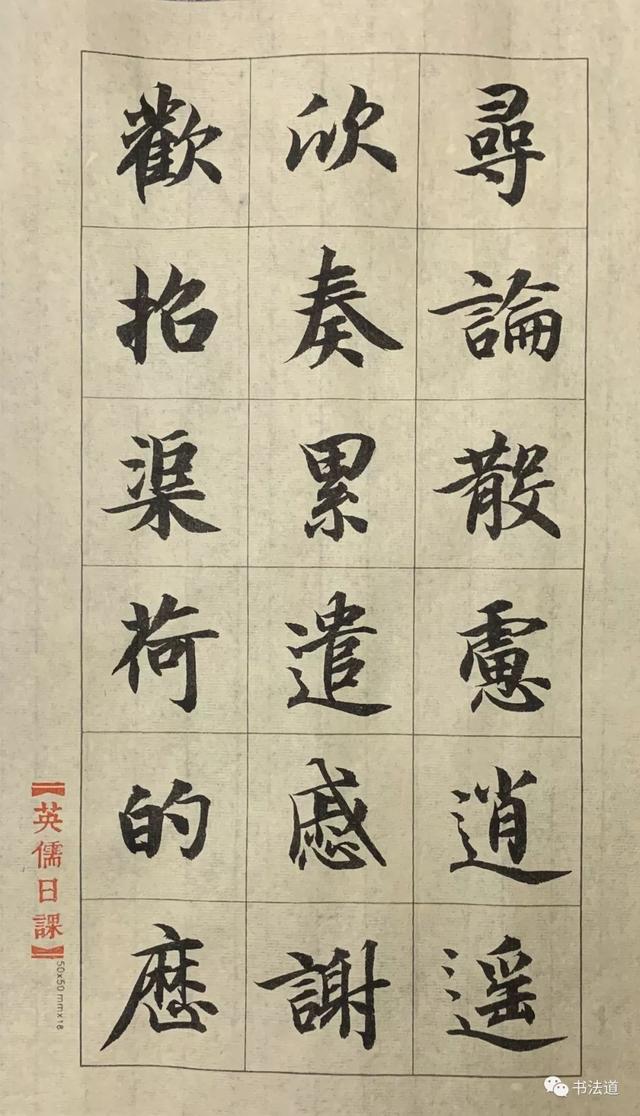 尋論散慮逍遥
欣奏累遣慼謝
歡招渠荷的歷
【英儒日課】50x50mmx18
书法道